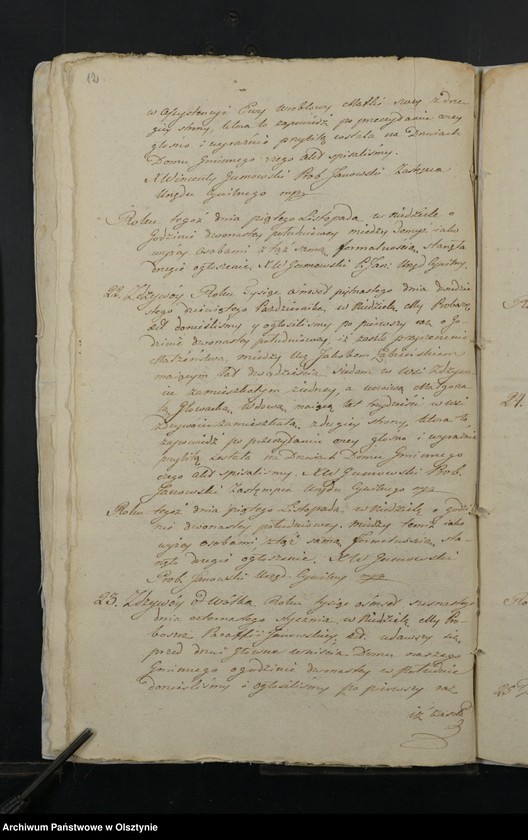 12
w Assystencyi Ewy Wroblowy Matki swey z dru-
giey strony, ktora to zapowiedź po przeczytaniu oney
głosno i wyraźnie przybitą została na Drzwiach
Domu Gminnego czego akt spisaliśmy.
X Wincenty Gumowski Prob. Janowski Zastępca
Urzędu Cywilnego mpp
Roku tegoż dnia piątego Listopada w Niedzielę o
Godzinie dwunasty południowey między temyż iako
wyżey Osobami z tąż samą formalnością stanęło
drugie ogłoszenie. X W Gumowski P. Jan: Urzęd Cywilny.
22. Zdzywóy Roku Tysiąc ośmset piętnastego dnia dwudzie-
stego dziewiątego Października, w Niedzielę, My Proboszcz
etd donieśliśmy y ogłosiliśmy po pierwszy raz o Go-
dzinie dwunasty południowey, iż zaszło przyrzeczenie
Małżeństwa, między Ur. Jakobem
maiącym lat dwadzieścia siedem w wsi Zdzywo-
iu zamieszkałym z iedney, a uczciwą Małgorza-
tą Głowacką, Wdową, maiącą lat trzydzieści w wsi
Zdzywoiu zamieszkałą, z drugiey strony, ktora to
zapowiedź po przeczytaniu oney głosno i wyraźnie
przybitą została na Drzwiach Domu Gminnego
czego akt spisaliśmy X W Gumowski Prob.
Janowski Zastempca Urzędu Cywilnego mpp
Roku tegoż dnia piątego Listopada w Niedzielę o godzi-
nie dwunasty południowey, między temiż iako
wyżey osobami z tąż samą formalnością, sta-
nęło drugie ogłoszenie. X W Gumowski
Prob. Janowski Urzęd. Cywilny mpp
23. Zdzywóy Wólka Roku tysiąc ośmset szesnastego
dnia czternastego Stycznia, w Niedzielę My Pro-
boszcz Paraffii Janowskiey, etd. udawszy się
przed drzwi główne weiścia Domu naszego
Gminnego o godzinie dwunasty w południe
donieśliśmy i ogłosiliśmy po pierwszy raz
iż zaszło
24.
25
Archiwum Państwowe w Olsztynie